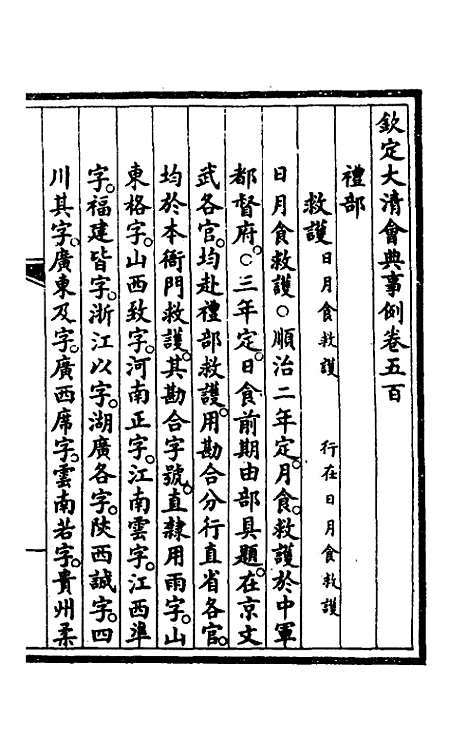 欽定大清會典事例卷五百
禮部
救護 日月食救護 行在日月食救護
日月食救護○順治二年定。月食。救護於中軍
都督府。○三年定。日食前期由部具題。在京文
武各官。均赴禮部救護。用勘合分行直省各官。
均於本衙門救護。其勘合字號。直隸用雨字。山
東格字。山西致字。河南正字。江南雲字。江西準
字。福建皆字。浙江以字。湖廣各字。陝西誠字。四
川其字。廣東及字。廣西席字。雲南若字。貴州柔